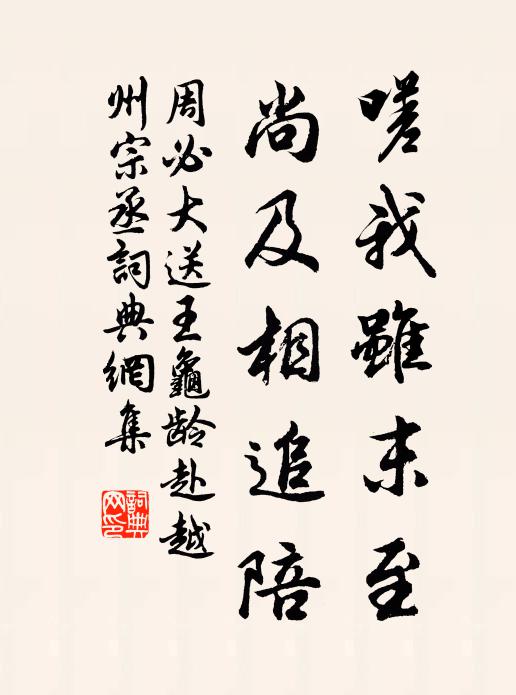 嗟我雖末至
尚及相追陪
周必大送王龜龄赴越
州宗丞詞典網集
詞典
网印